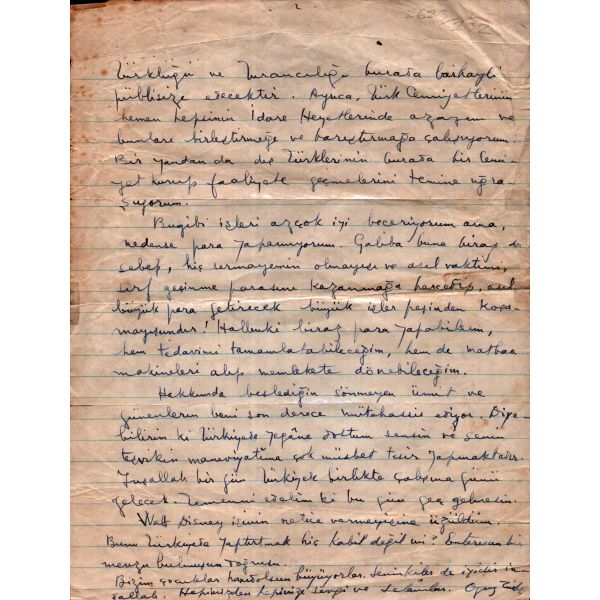 2
Türklüğü ve Turancılığı burada barhayli
püblisize edecektir. Ayrıca, Türk Cemiyetlerinin
hemen hepsinin İdare Heyetlerinde azayım ve
bunları birleştirmeğe ve barıştırmağa çalışıyorum.
Bir yandan da dış Türklerinin burada bir Cemi-
yet kurup faaliyete geçmelerini temine uğra-
şıyorum.
Bugibi işleri azçok iyi beceriyorum ama,
nedense para yapamıyorum. Galiba buna biraz da
sebep, hiç sermayemin olmayışı ve asıl vaktimi,
sırf geçinme parasını kazanmağa harcedip, asıl
büyük para getirecek büyük işler peşinden koşa-
mayışımdır! Halbuki biraz para yapabilsem,
hem tedavimi tamamlatabileceğim, hem de matbaa
makineleri alıp memlekete dönebileceğim.
Hakkımda beslediğin sönmeyen ümit ve
güvenlerin beni son derece mütehassis ediyor. Diye-
bilirim ki Türkiyede yegâne dostum sensin ve senin
teşvikin maneviyatıma çok müsbet tesir yapmaktadır.
İnşallah bir gün Türkiyede birlikte çalışma günü
gelecek. Temenni edelim ki bu gün geç gelmesin.
Walt Disney işinin netice vermeyişine üzüldüm.
Bunu Türkiyede yaptırtmak hiç kabil değil mi? Enteresan bir
mevzu bulmuşsun doğrusu.
Bizim çocuklar hamdolsun büyüyorlar. Seninkiler de iyidir in-
şallah. Hepimizden hepinize sevgi ve selâmlar.